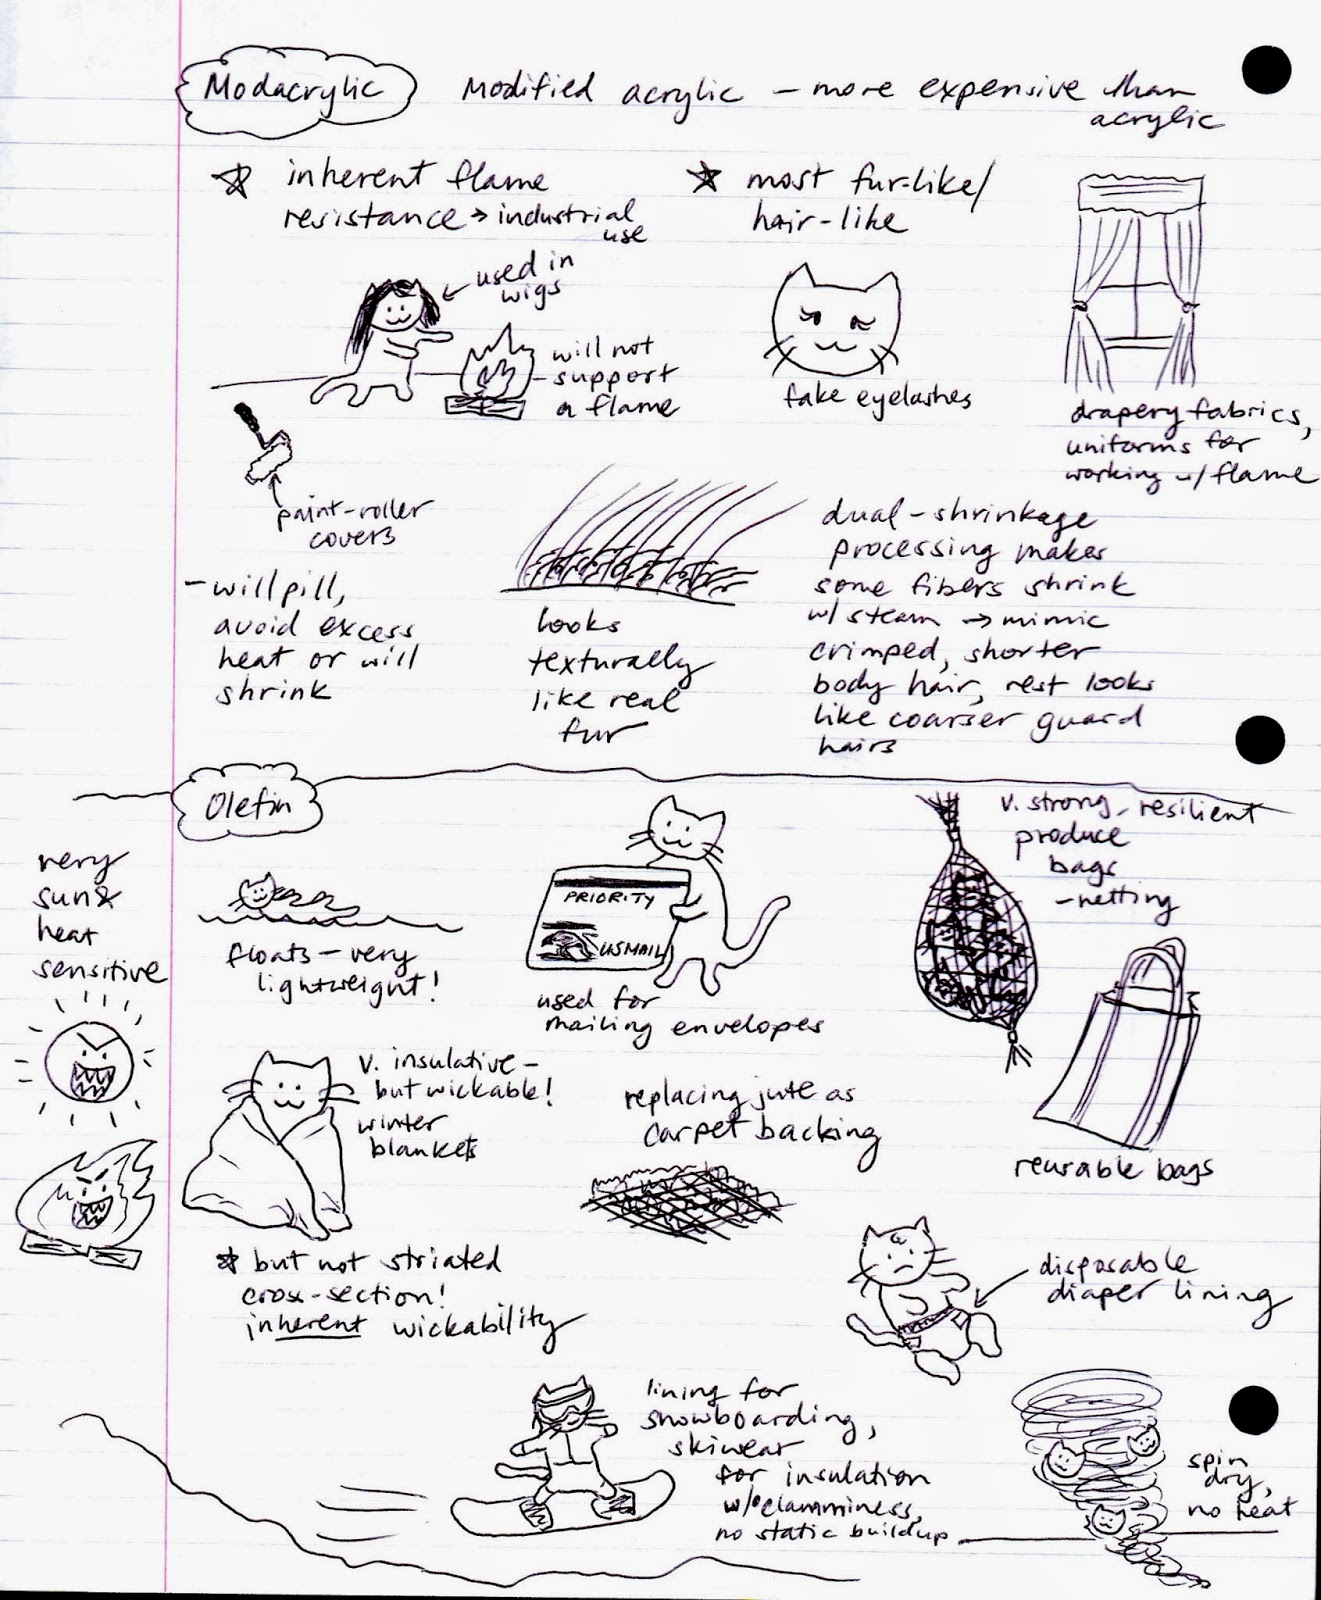 Modacrylic
Modified acrylic - more expensive than
acrylic
☆ inherent flame
resistance → industrial
use
☆ most fur-like/
hair-like
used in
wigs
will not
support
a flame
fake eyelashes
drapery fabrics,
uniforms for
working w/ flame
paint-roller
covers
- will pill,
avoid excess
heat or will
shrink
looks
texturally
like real
fur
dual-shrinkage
processing makes
some fibers shrink
w/ steam → mimic
crimped, shorter
body hair, rest looks
like coarser guard
hairs
Olefin
very
sun &
heat
sensitive
floats - very
lightweight!
PRIORITY
US MAIL
used for
mailing envelopes
v. strong, resilient
produce
bags
- netting
reusable bags
v. insulative -
but wickable!
winter
blankets
replacing jute as
carpet backing
☆ but not striated
cross-section!
inherent wickability
disposable
diaper lining
lining for
snowboarding,
skiwear
for insulation
w/o clamminess,
no static buildup
spin
dry,
no heat